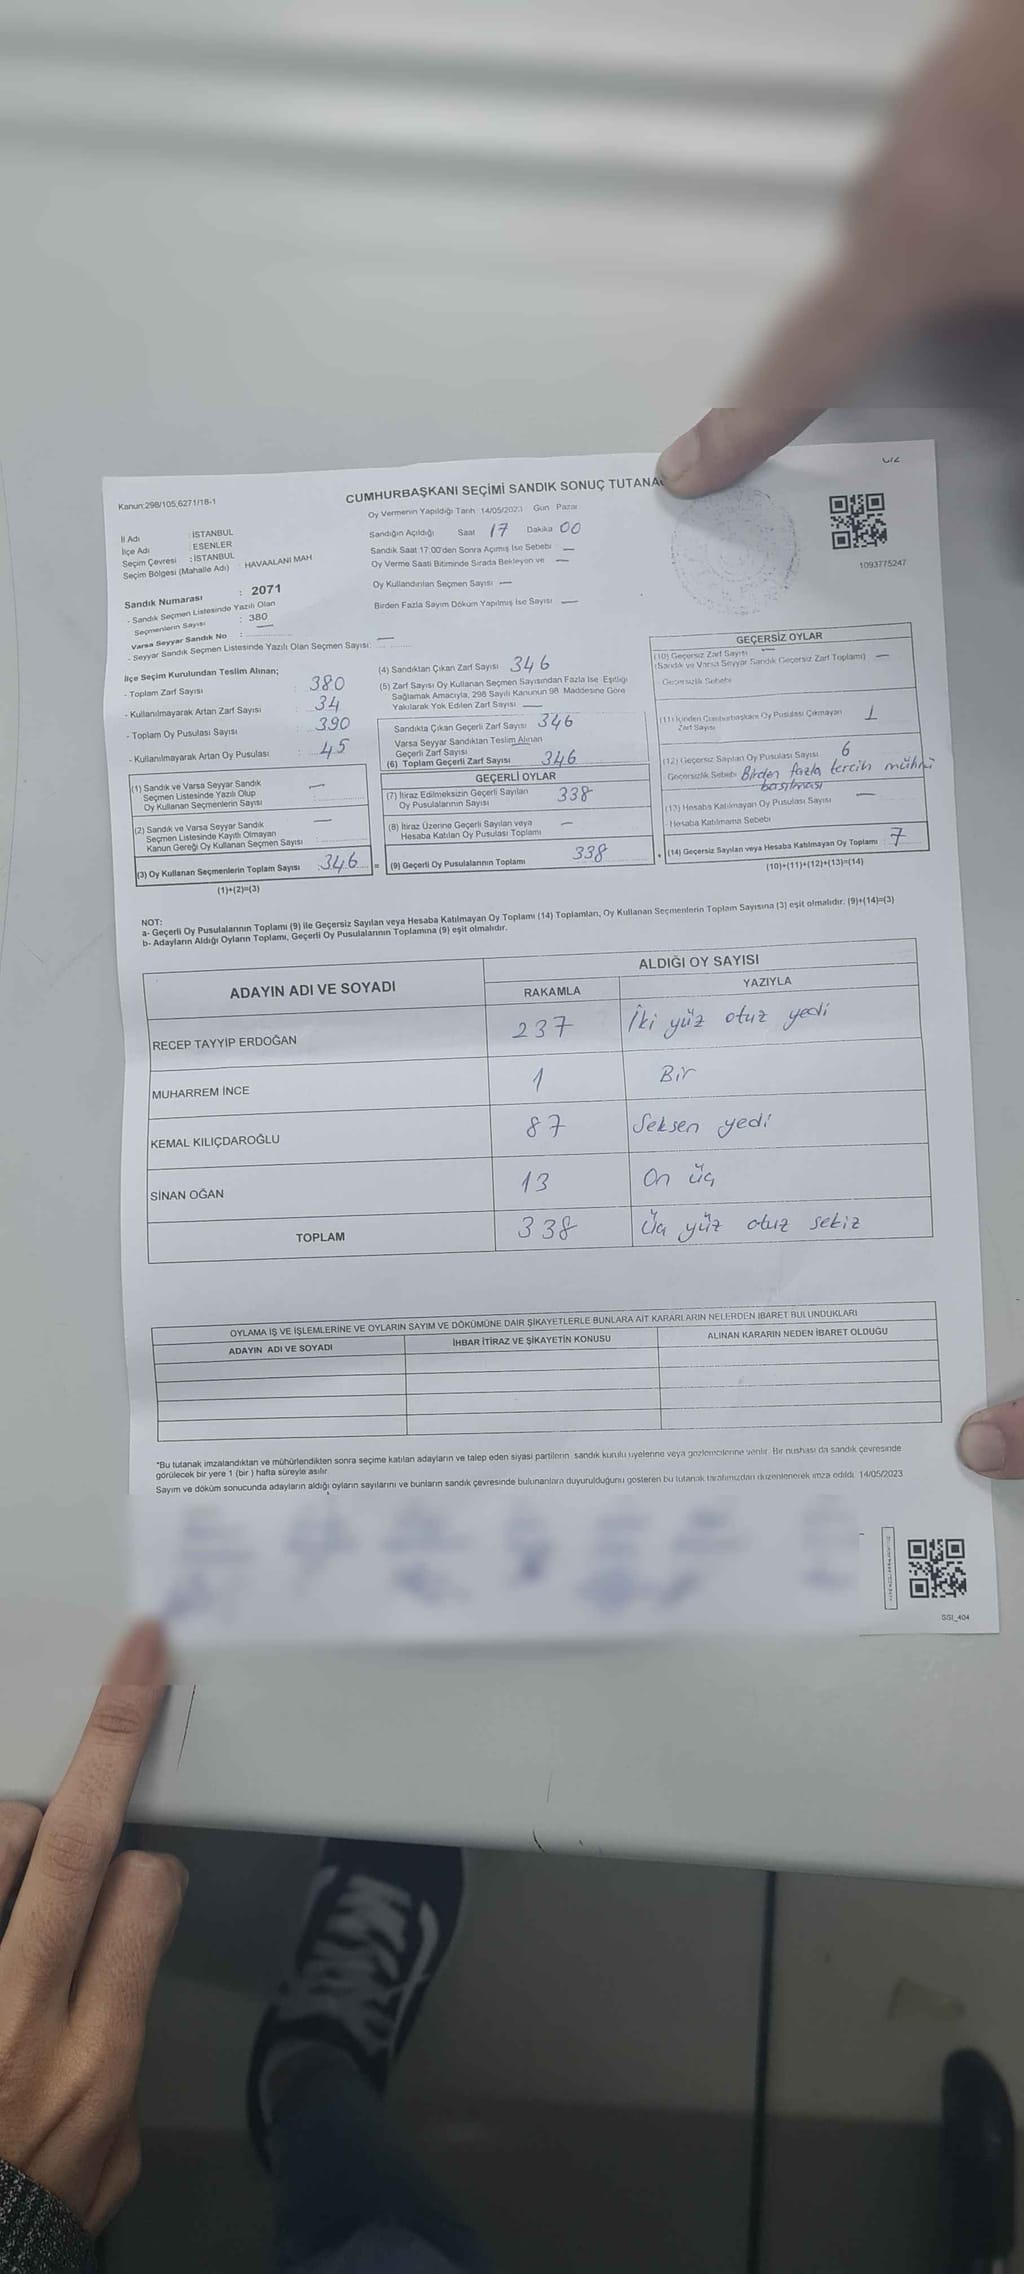 Kanun:298/105,6271/18-1
CUMHURBAŞKANI SEÇİMİ SANDIK SONUÇ TUTANA
Oy Vermenin Yapıldığı Tarih 14/05/2023 Gün Pazar
1093775247
İl Adı : İSTANBUL
İlçe Adı : ESENLER
Seçim Çevresi : İSTANBUL
Seçim Bölgesi (Mahalle Adı) : HAVAALANI MAH
Sandığın Açıldığı Saat 17 Dakika 00
Sandık Saat 17:00'den Sonra Açımış İse Sebebi —
Oy Verme Saati Bitiminde Sırada Bekleyen ve —
Oy Kullandırılan Seçmen Sayısı —
Birden Fazla Sayım Döküm Yapılmış İse Sayısı —
Sandık Numarası : 2071
- Sandık Seçmen Listesinde Yazılı Olan
Seçmenlerin Sayısı : 380
Varsa Seyyar Sandık No : —
- Seyyar Sandık Seçmen Listesinde Yazılı Olan Seçmen Sayısı: —
İlçe Seçim Kurulundan Teslim Alınan;
- Toplam Zarf Sayısı : 380
- Kullanılmayarak Artan Zarf Sayısı : 34
- Toplam Oy Pusulası Sayısı : 390
- Kullanılmayarak Artan Oy Pusulası : 45
(1) Sandık ve Varsa Seyyar Sandık
Seçmen Listesinde Yazılı Olup
Oy Kullanan Seçmenlerin Sayısı —
(2) Sandık ve Varsa Seyyar Sandık
Seçmen Listesinde Kayıtlı Olmayan
Kanun Gereği Oy Kullanan Seçmen Sayısı —
(3) Oy Kullanan Seçmenlerin Toplam Sayısı : 346 =
(1)+(2)=(3)
(4) Sandıktan Çıkan Zarf Sayısı 346
(5) Zarf Sayısı Oy Kullanan Seçmen Sayısından Fazla İse Eşitliği
Sağlamak Amacıyla, 298 Sayılı Kanunun 98. Maddesine Göre
Yakılarak Yok Edilen Zarf Sayısı —
Sandıkta Çıkan Geçerli Zarf Sayısı 346
Varsa Seyyar Sandıktan Teslim Alınan
Geçerli Zarf Sayısı
(6) Toplam Geçerli Zarf Sayısı 346
GEÇERLİ OYLAR
(7) İtiraz Edilmeksizin Geçerli Sayılan
Oy Pusulalarının Sayısı 338
(8) İtiraz Üzerine Geçerli Sayılan veya
Hesaba Katılan Oy Pusulası Toplamı —
(9) Geçerli Oy Pusulalarının Toplamı 338 +
GEÇERSİZ OYLAR
(10) Geçersiz Zarf Sayısı —
(Sandık ve Varsa Seyyar Sandık Geçersiz Zarf Toplamı) —
- Geçersizlik Sebebi
(11) İçinden Cumhurbaşkanı Oy Pusulası Çıkmayan
Zarf Sayısı 1
(12) Geçersiz Sayılan Oy Pusulası Sayısı 6
- Geçersizlik Sebebi Birden fazla tercih mührü
basılması
(13) Hesaba Katılmayan Oy Pusulası Sayısı —
- Hesaba Katılmama Sebebi
(14) Geçersiz Sayılan veya Hesaba Katılmayan Oy Toplamı : 7
(10)+(11)+(12)+(13)=(14)
NOT:
a- Geçerli Oy Pusulalarının Toplamı (9) ile Geçersiz Sayılan veya Hesaba Katılmayan Oy Toplamı (14) Toplamları, Oy Kullanan Seçmenlerin Toplam Sayısına (3) eşit olmalıdır. (9)+(14)=(3)
b- Adayların Aldığı Oyların Toplamı, Geçerli Oy Pusulalarının Toplamına (9) eşit olmalıdır.
ADAYIN ADI VE SOYADI ALDIĞI OY SAYISI
RAKAMLA YAZIYLA
RECEP TAYYİP ERDOĞAN 237 İki yüz otuz yedi
MUHARREM İNCE 1 Bir
KEMAL KILIÇDAROĞLU 87 Seksen yedi
SİNAN OĞAN 13 On üç
TOPLAM 338 Üç yüz otuz sekiz
OYLAMA İŞ VE İŞLEMLERİNE VE OYLARIN SAYIM VE DÖKÜMÜNE DAİR ŞİKAYETLERLE BUNLARA AİT KARARLARIN NELERDEN İBARET BULUNDUKLARI
ADAYIN ADI VE SOYADI İHBAR İTİRAZ VE ŞİKAYETİN KONUSU ALINAN KARARIN NEDEN İBARET OLDUĞU
*Bu tutanak imzalandıktan ve mühürlendikten sonra seçime katılan adayların ve talep eden siyasi partilerin sandık kurulu üyelerine veya gözlemcilerine verilir. Bir nüshası da sandık çevresinde
görülecek bir yere 1 (bir ) hafta süreyle asılır.
Sayım ve döküm sonucunda adayların aldığı oyların sayılarını ve bunların sandık çevresinde bulunanlara duyurulduğunu gösteren bu tutanak tarafımızdan düzenlenerek imza edildi. 14/05/2023
SSI_404